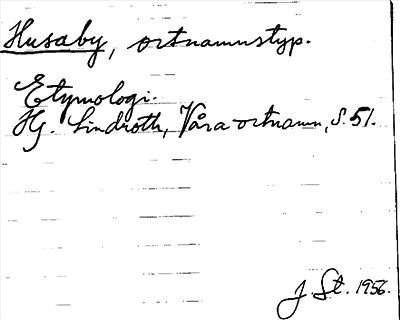 Husaby, ortnamnstyp.
Etymologi.
Hj. Lindroth, Våra ortnamn, S. 51.
J. St. 1956.